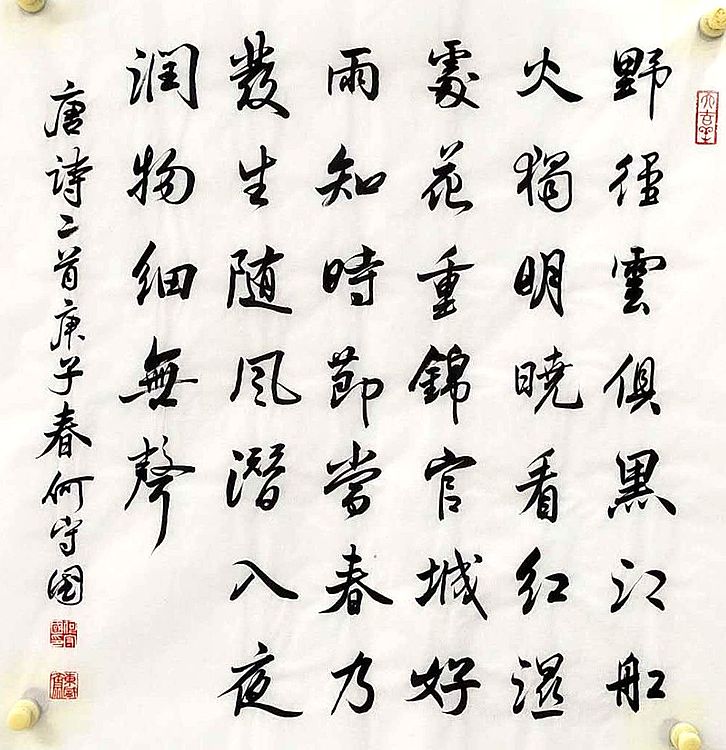 大吉羊
野徑雲俱黑江船
火獨明曉看紅濕
處花重錦官城好
雨知時節當春乃
發生随風潛入夜
潤物細無聲
唐詩二首庚子春何守國